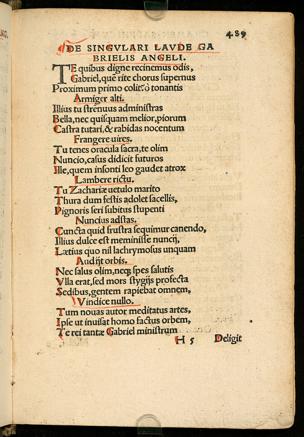 489
DE SINGVLARI LAVDE GA
BRIELIS ANGELI.
TE quibus digne recinemus odis,
Gabriel, quē rite chorus supernus
Proximum primo colit, ò tonantis
Armiger alti.
Illius tu strenuus administras
Bella, nec quisquam melior, piorum
Castra tutari, & rabidas nocentum
Frangere uires.
Tu tenes oracula sacra, te olim
Nuncio, casus didicit futuros
Ille, quem insonti leo gaudet atrox
Lambere rictu.
Tu Zachariæ uetulo marito
Thura dum festis adolet sacellis,
Pignoris seri subitus stupenti
Nuncius adstas.
Cuncta quid frustra sequimur canendo,
Illius dulce est meminisse nuncij,
Lætius quo nil lachrymosus unquam
Audijt orbis.
Nec salus olim, neq; spes salutis
Vlla erat, sed mors stygijs profecta
Sedibus, gentem rapiebat omnem,
Vindice nullo.
Tum nouas autor meditatus artes,
Ipse ut inuisat homo factus orbem,
Te rei tantæ Gabriel ministrum
H 5 Deligit